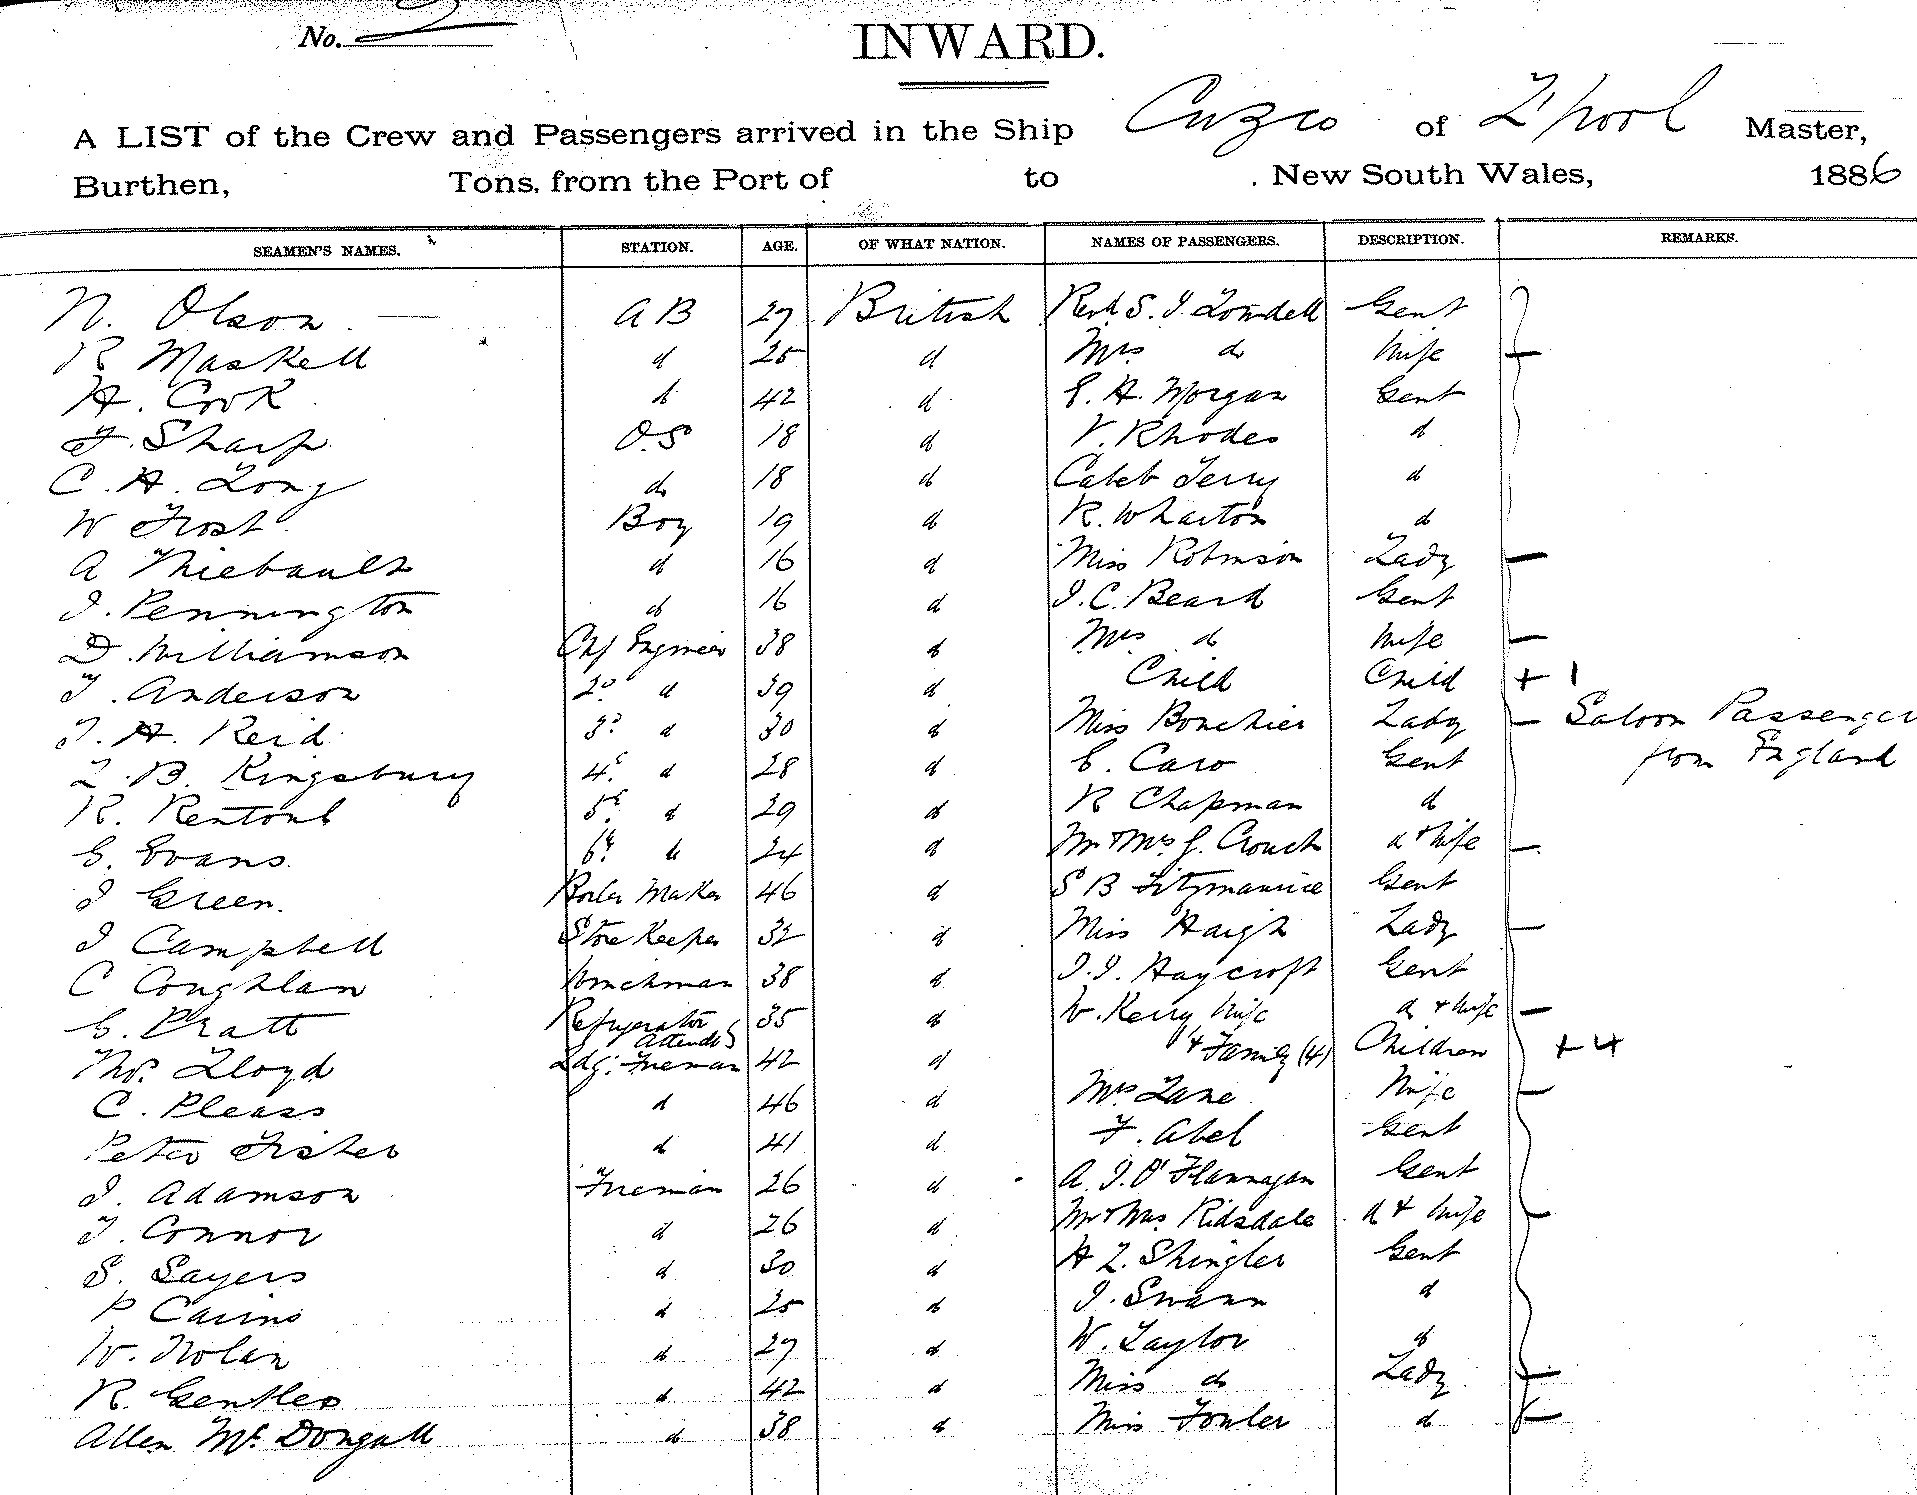 No. 2
INWARD.
A LIST of the Crew and Passengers arrived in the Ship Cuzco of L'pool Master,
Burthen, Tons, from the Port of to , New South Wales, 1886
SEAMEN'S NAMES. STATION. AGE. OF WHAT NATION. NAMES OF PASSENGERS. DESCRIPTION. REMARKS.
N. Olson A B 27 British Revd S. J. Gent
R Maskell d 25 d Mrs do Wife
H. Cook d 42 d E. H. Morgan Gent
F. Sharp O.S 18 d V. Rhodes d
C. H. Long do 18 d Caleb Terry d
W Frost Boy 19 d R. Wharton d
A Thiebault d 16 d Miss Robinson Lady
J. Pennington d 16 d J. C. Beard Gent
D. Williamson Chf Engineer 38 d Mrs do Wife
J. Anderson 2d d 39 d Child Child + 1
J. H. Reid 3d d 30 d Miss Bonchier Lady Saloon Passenger
L. B. Kingsbury 4th d 28 d E. Caro Gent from England
R. Rentoul 5th d 29 d R Chapman d
E. Evans 6th d 24 d Mr & Mrs J. Crouch d & Wife
J Green. Boiler Maker 46 d S B Fitzmaurice Gent
J Campbell Store Keeper 32 d Miss Haigh Lady
C Coughlan Winchman 38 d J. J. Haycroft Gent
E. Pratt Refrigerator Attendt 35 d W. Kerry Wife d & Wife
Thos. Lloyd Ldg: Fireman 42 d & Family (4) Children + 4
C. Pleass d 46 d Mrs Lane Wife
Peter Fisher d 41 d F. Abel Gent
J. Adamson Fireman 26 d A. J. O'Flannagan Gent
J. Connor d 26 d Mr & Mrs. Ridsdale d & Wife
S. Sayers d 30 d H L. Shingler Gent
P Cairns d 25 d J. Swann d
W. Nolan d 27 d W. Taylor d
R. Gentles d 42 d Miss do Lady
Allen McDougall d 38 d Miss Fowler d